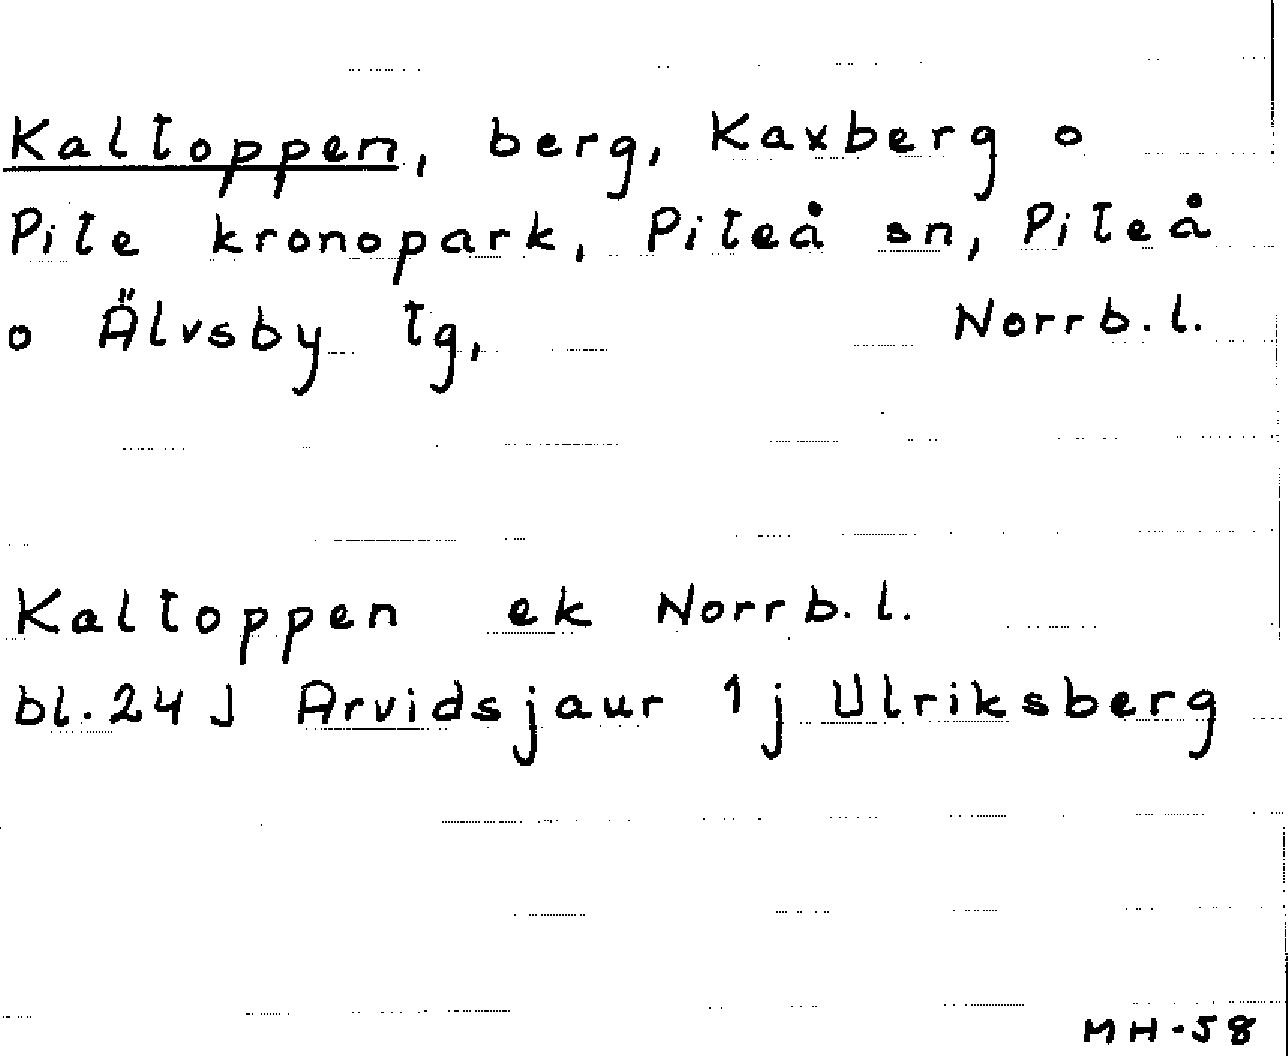 Kaltoppen, berg, Kaxberg o
Pite kronopark, Piteå sn, Piteå
o Älvsby tg, Norrb.l.
Kaltoppen ek Norrb.l.
bl.24 J Arvidsjaur 1 j Ulriksberg
MH-58